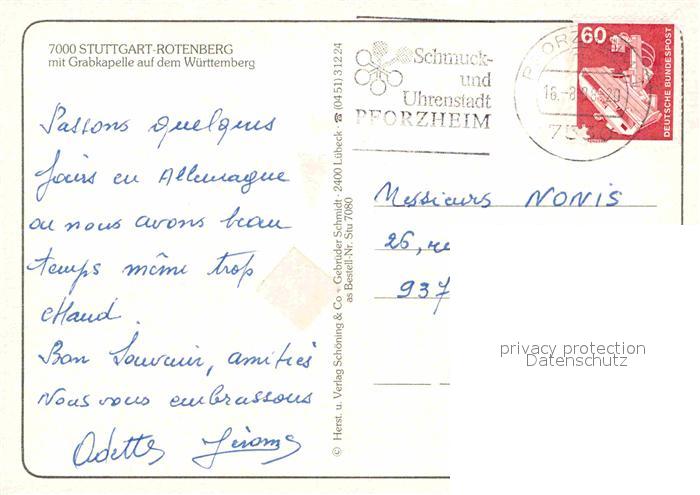 7000 STUTTGART-ROTENBERG
mit Grabkapelle auf dem Württemberg
Passons quelques
jours en Allemagne
ou nous avons beau
temps même trop
chaud.
Bon Souvenir, amitiés
Nous vous embrassons
Odette Jérome
© Herst. u. Verlag Schöning & Co + Gebrüder Schmidt · 2400 Lübeck · ☎ (0451) 31224
as Bestell-Nr. Stu 7080
Schmuck-
und
Uhrenstadt
PFORZHEIM
60
DEUTSCHE BUNDESPOST
Messieurs NONIS
26,
937
privacy protection
Datenschutz